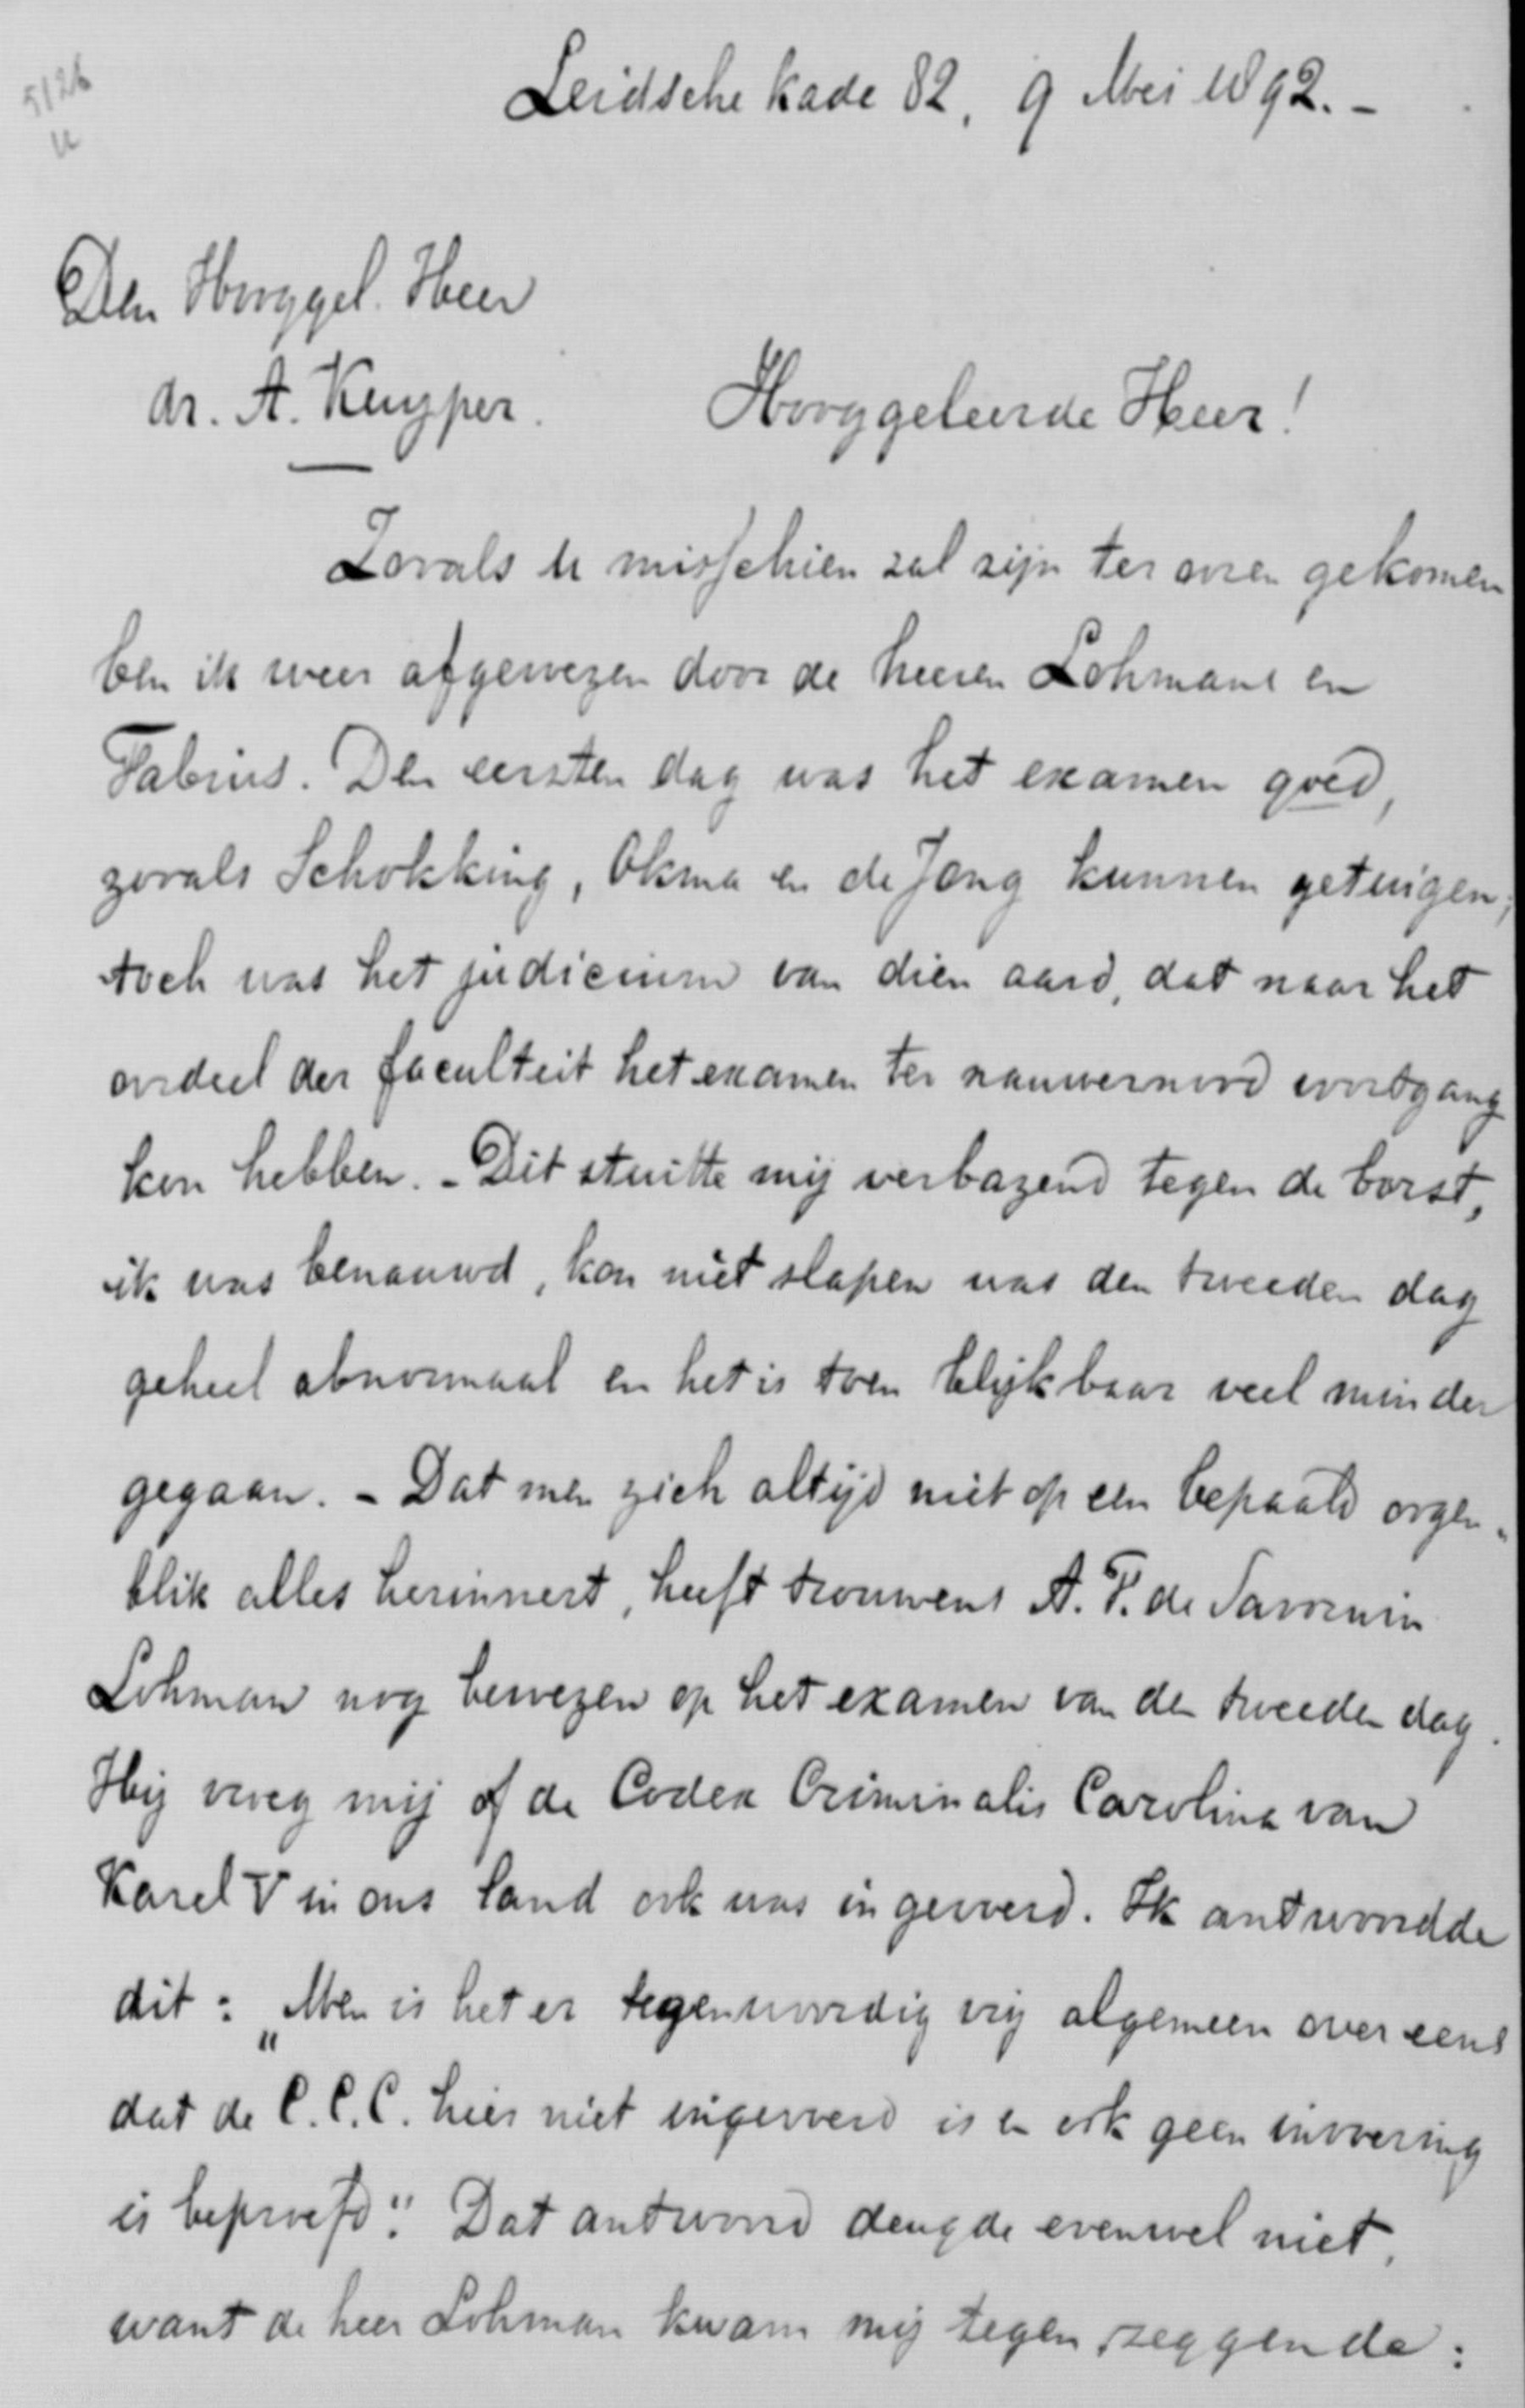 5126
u
Leidsche kade 82, 9 Mei 1892.-
Den Hooggel. Heer
dr. A. Kuyper.
Hooggeleerde Heer!
Zooals u misschien zal zijn ter ooren gekomen
ben ik weer afgewezen door de heeren Lohmans en
Fabius. Den eersten dag was het examen goed,
zooals Schokking, Okma en de Jong kunnen getuigen;
toch was het judicium van dien aard, dat naar het
oordeel der faculteit het examen ter nauwernood voortgang
kon hebben. - Dit stuitte mij verbazend tegen de borst,
ik was benauwd, kon niet slapen was den tweeden dag
geheel abnormaal en het is toen blijkbaar veel minder
gegaan. - Dat men zich altijd niet op een bepaald oogen-
blik alles herinnert, heeft trouwens A. F. de Savornin
Lohman nog bewezen op het examen van den tweeden dag.
Hij vroeg mij of de Codex Criminalis Carolina van
Karel V in ons land ook was ingevoerd. Ik antwoordde
dit: „Men is het er tegenwoordig vrij algemeen over eens
dat de C.C.C. hier niet ingevoerd is en ook geen invoering
is beproefd". Dat antwoord deugde evenwel niet,
want de heer Lohman kwam mij tegen, zeggende: